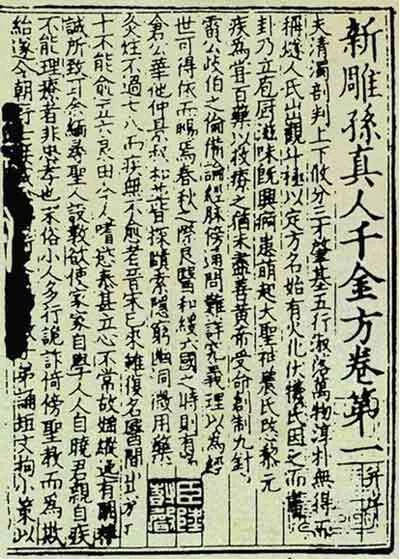 新雕孫真人千金方卷第一并序
夫清濁剖判上下攸分三才肇基五行淑落萬物淳朴無得而
稱燧人氏出觀斗極以定方名始有火化伏犧氏因之而畫
卦乃立庖厨滋味既興痾患萌起大聖神農氏愍黎元
疾爲嘗百藥以救療之猶未盡善黃帝受命創制九針
雷公岐伯之倫備論經脉傍通問難詳究義理以爲經
世可得依而暢焉春秋之際良醫和緩六國之時則有
倉公華他仲景叔和並皆探賾索隱窮幽洞微用藥
灸炷不過七八而疾無不愈者晉宋已來雖復名醫間出
十不能愈五六良由今人嗜慾泰甚立心不常放縱逸有闕
誠所致耳余緬尋聖人設教欲使家家自學人人自曉君親有疾
不能理療者非忠孝也末俗小人多行詭詐倚傍聖教而爲欺
紿遂令朝野士子弟誦短文構小策以
臣陸